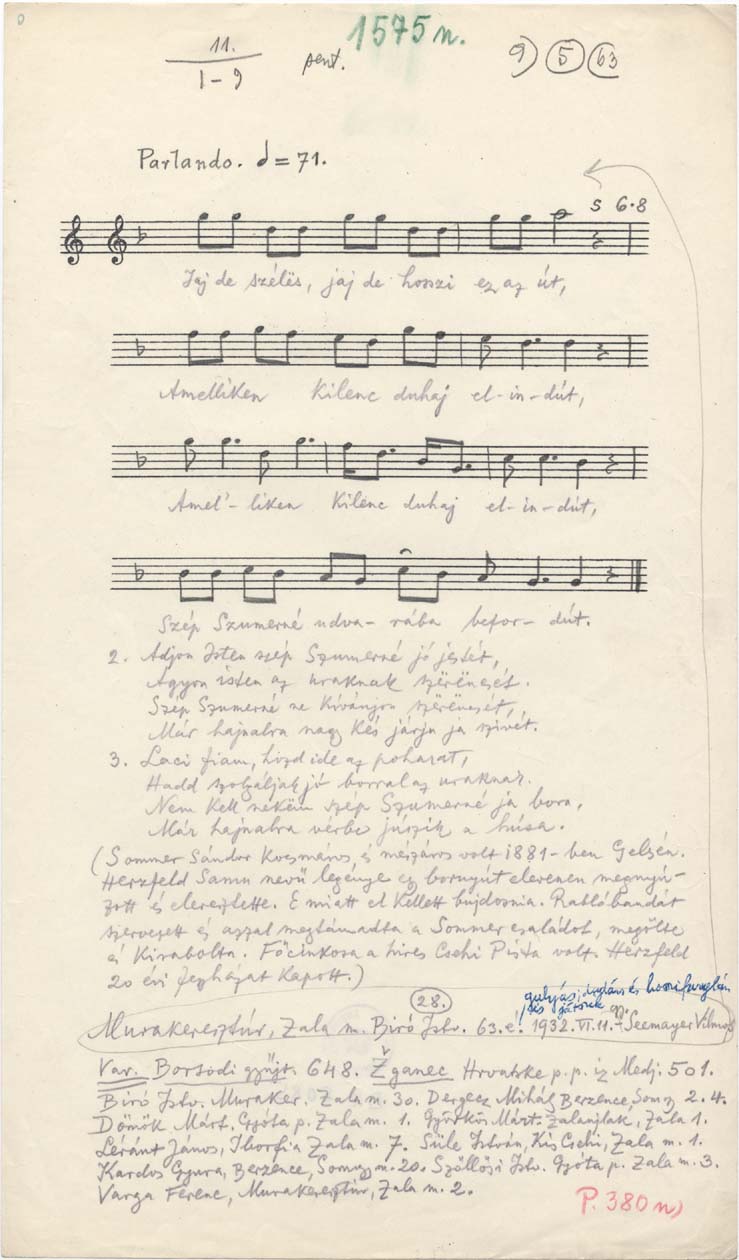 1575 n.
11.
1-9
pent.
9) 5 63
Parlando. = 71.
s 6·8
Jaj de szélës, jaj de hosszi ez az út,
Amelliken Kilenc duhaj el-in-dút,
Amel'-liken Kilenc duhaj el-in-dút,
Szép Szumerné udva-rába befor-dút.
2. Adjon Isten szép Szumerné jó jestét,
Agyon isten az uraknak szërëncsét.
Szép Szumerné ne Kívánjon szërëncsét,
Már hajnalra nagy Kés járja ja szivét.
3. Laci fiam, hozd ide az poharat,
Hadd szolgáljak jó borral az uraknak.
Nem Kell nekëm szép Szumerné ja bora,
Már hajnalra vérbe júszik a húsa.
(Sommer Sándor Kocsmáros, és mészáros volt 1881-ben Gelsén.
Herzfeld Samu nevű legénye egy bornyút elevenen megnyú-
zott és eleresztette. E miatt el Kellett bujdosnia. Rablóbandát
szervezett és azzal megtámadta a Sommer családot, megölte
és Kirabolta. Főcinkosa a híres Csehi Pista volt. Herzfeld
20 évi fegyházat Kapott.)
28.
gulyás, dudás és hosszifuruglán
és játszik
Murakeresztúr, Zala m. Biró Istv. 63. é. 1932. VI. 11. Seemayer Vilmos
Var. Borsodi gyűjt. 648. Žganec Hrvatske p. p. iz Medj. 501.
Biró Istv. Muraker. Zala m. 30. Dergecz Mihály Berzence, Somogy 2. 4.
Dömök Márt. Gyóta p. Zala m. 1. Györkös Márt. Zalaujlak, Zala 1.
Léránt János, Iborfia Zala m. 7. Süle István, Kis Csehi, Zala m. 1.
Kardos Gyura, Berzence, Somogy m. 20. Szöllősi Istv. Gyóta p. Zala m. 3.
Varga Ferenc, Murakeresztúr, Zala m. 2.
P. 380 n)